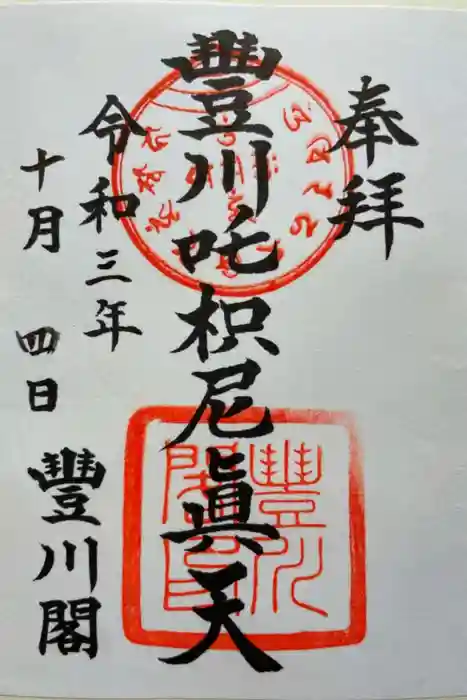 奉拝
豐川吒枳尼眞天
令和三年
十月 四日
豐川閣